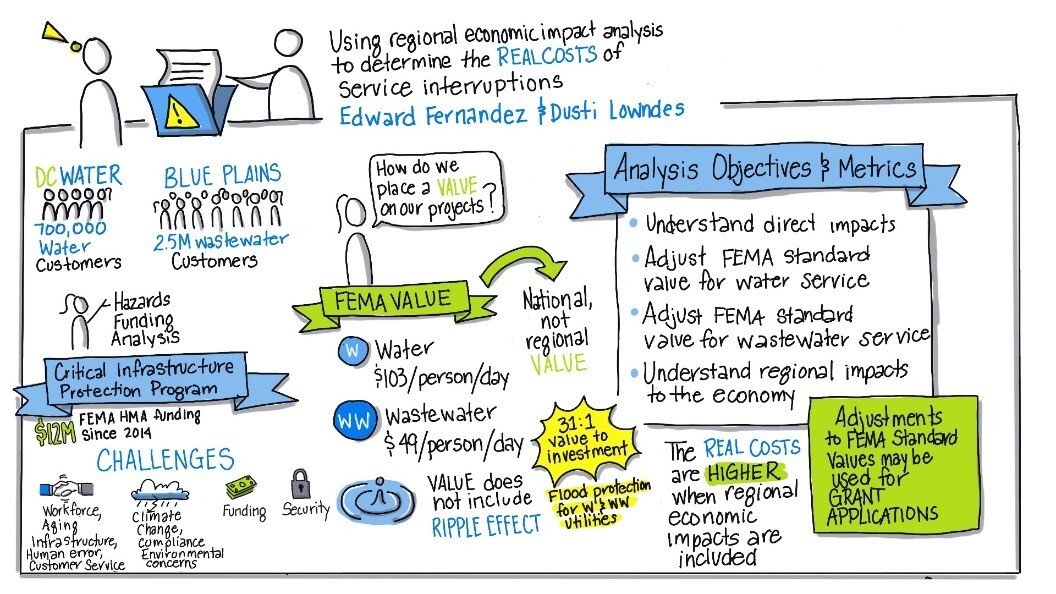 Using regional economic impact analysis
to determine the REAL COSTS of
service interruptions
Edward Fernandez & Dusti Lowndes
DC WATER
700,000
Water
Customers
BLUE PLAINS
2.5M wastewater
Customers
Hazards
Funding
Analysis
Critical Infrastructure
Protection Program
$12M FEMA HMA funding
since 2014
CHALLENGES
Workforce,
Aging
Infrastructure,
Human error,
Customer Service
Climate
Change,
Compliance
Environmental
concerns
Funding
Security
How do we
place a VALUE
on our projects?
FEMA VALUE
W Water
$103/person/day
WW Wastewater
$49/person/day
National,
not
regional
VALUE
VALUE does
not include
RIPPLE EFFECT
31:1
value to
investment
Flood protection
for W & WW
utilities
Analysis Objectives & Metrics
• Understand direct impacts
• Adjust FEMA standard
value for water service
• Adjust FEMA standard
value for wastewater service
• Understand regional impacts
to the economy
The REAL COSTS
are HIGHER
when regional
economic
impacts are
included
Adjustments
to FEMA Standard
Values may be
used for
GRANT
APPLICATIONS